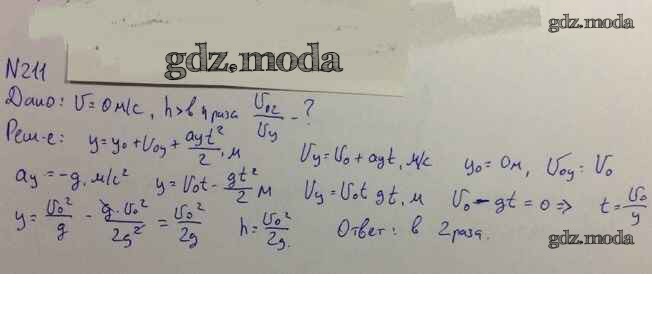 gdz.moda
gdz.moda
N211
Дано: V=0м/с, h>в 4 раза V₀₂/Vy - ?
Реш-е: y=y₀+V₀y+ayt²/2, м
Vy=V₀+ayt, м/с y₀=0м, V₀y=V₀
ay=-g, м/с² y=V₀t-gt²/2 м Vy=V₀t gt, м V₀-gt=0=> t=V₀/y
y=V₀²/g - g·V₀²/2g² = V₀²/2g h=V₀²/2g. Ответ: в 2 раза.
gdz.moda